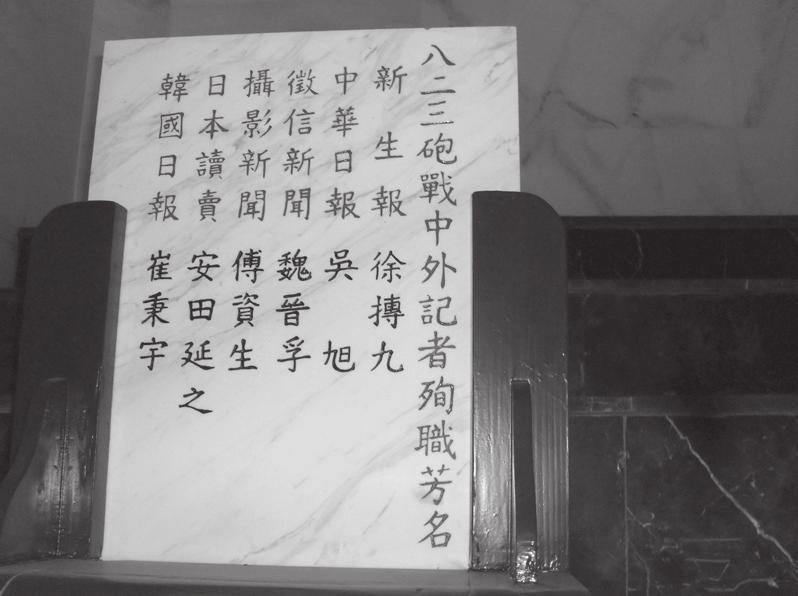 八二三砲戰中外記者殉職芳名
新生報 徐摶九
中華日報 吳旭
徵信新聞 魏晉孚
攝影新聞 傅資生
日本讀賣 安田延之
韓國日報 崔秉宇